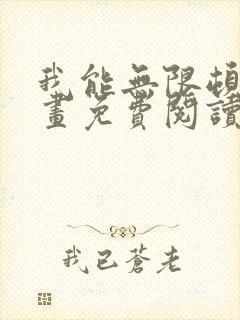 我能無限頓
畫免費閱讀
我已蒼老